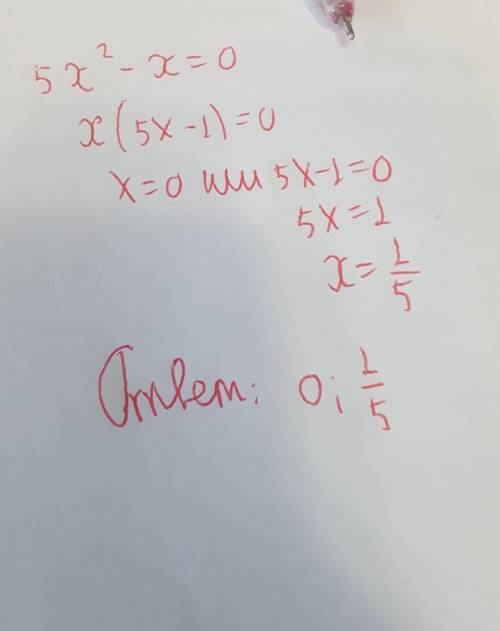 5x² - x = 0
x(5x - 1) = 0
x = 0 или 5x - 1 = 0
5x = 1
x = 1/5
Ответ: 0; 1/5